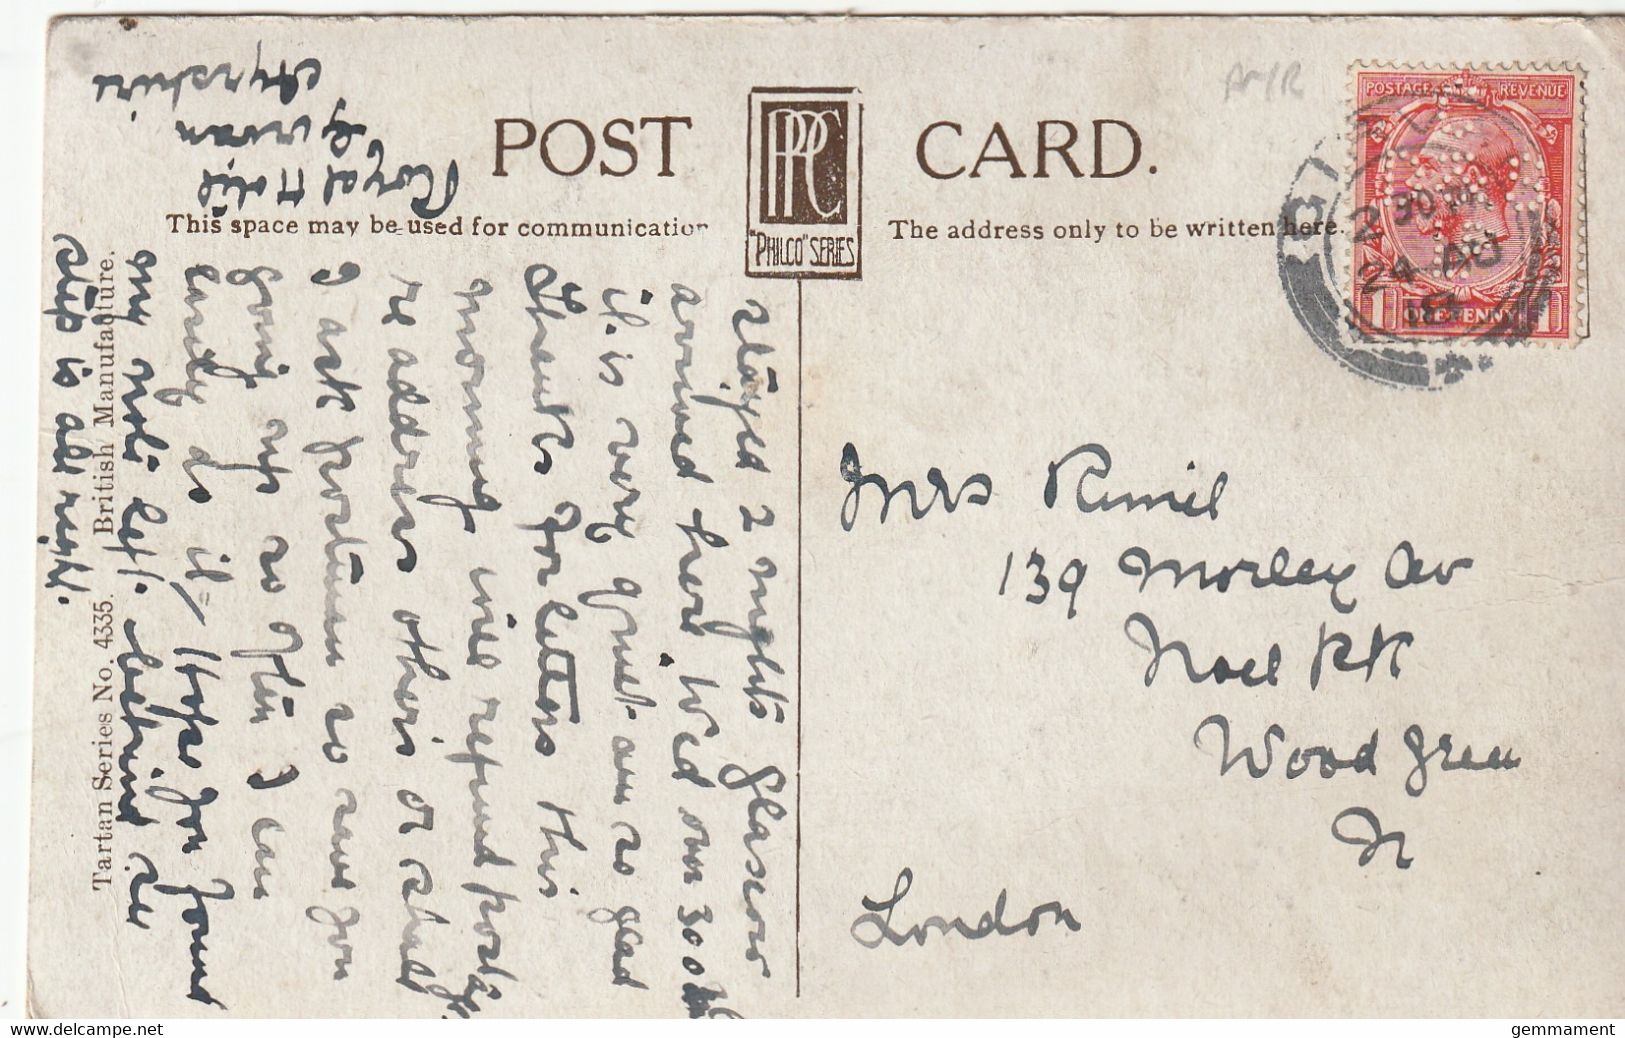 POST CARD.
PPC
"PHILCO" SERIES
This space may be used for communication
The address only to be written here.
Tartan Series No. 4335. British Manufacture.
POSTAGE REVENUE
1 ONE PENNY 1
2 30 PM
24 AU
18
Royal Hotel
Girvan
Ayrshire
Stayed 2 nights Glasgow
arrived here Wed over 300
it is very quiet am so glad
Thanks for letters this
morning will refund postage
re address others or shall
I ask postman to save you
going up so often I can
easily do it = Hope you found
my note left behind
slip is all right.
Mrs
139 Morley Av
Noel Pk
Wood Green
N
London
gemmament